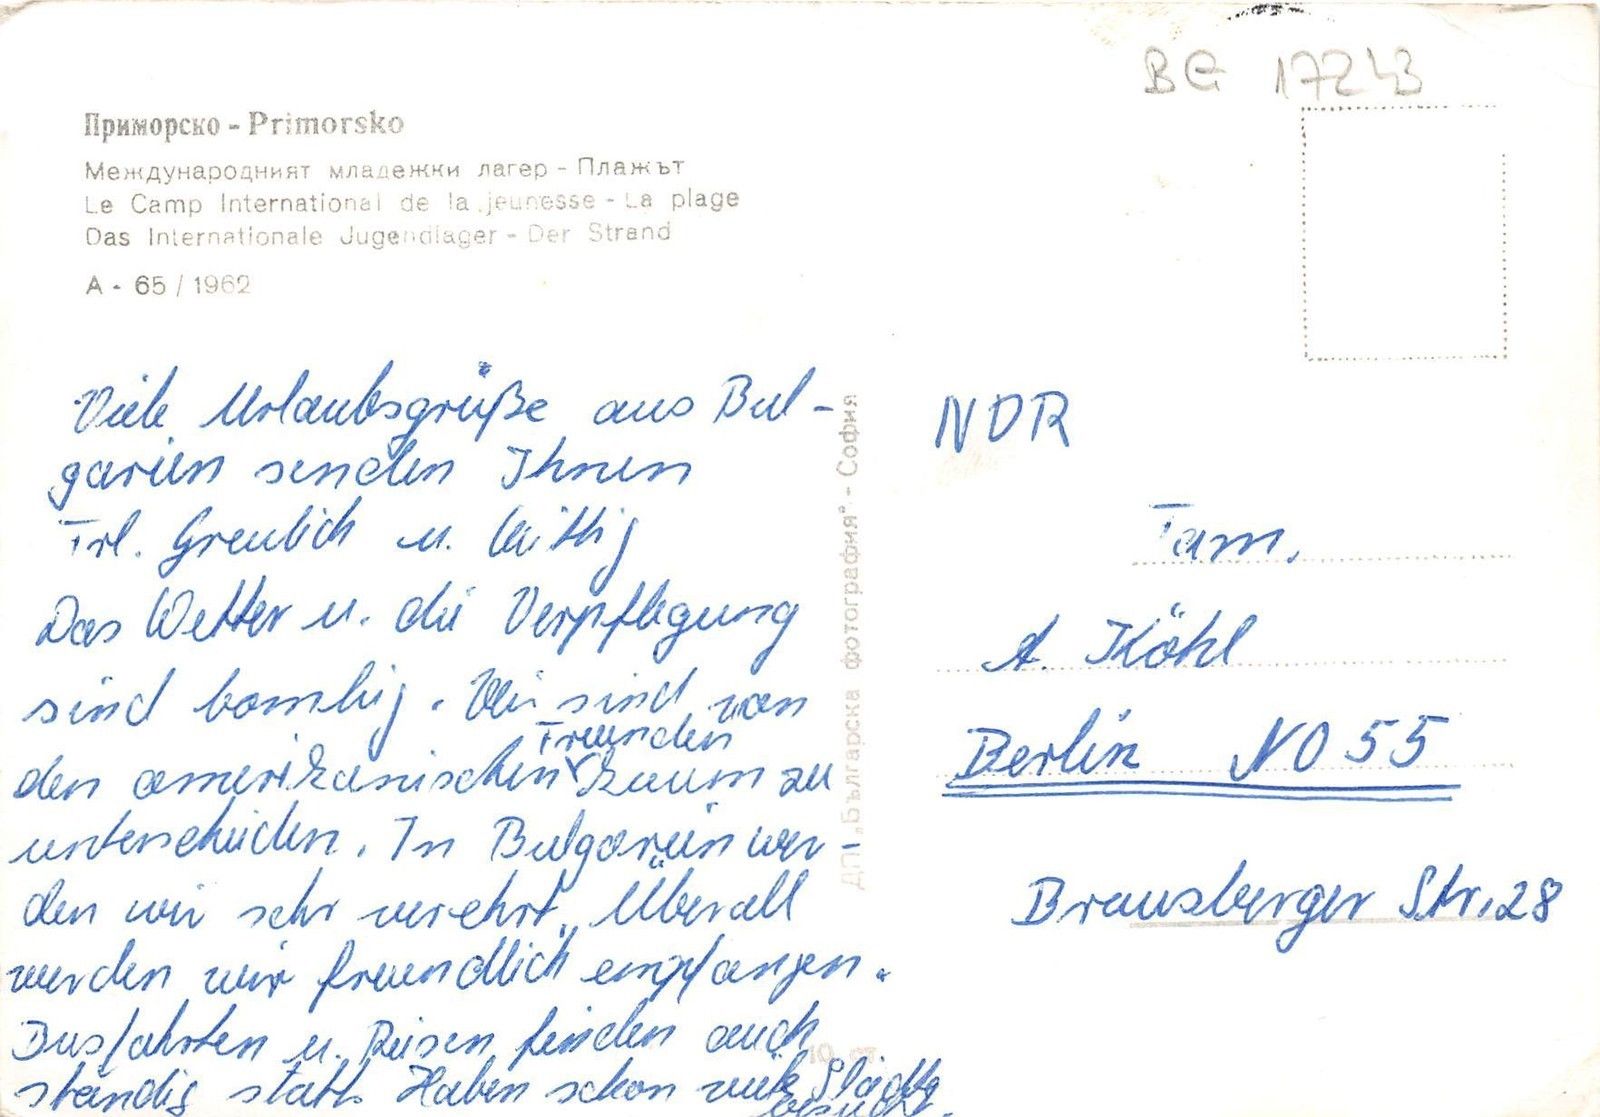 BG 17243
Приморско - Primorsko
Международният младежки лагер - Плажът
Le Camp International de la jeunesse - La plage
Das Internationale Jugendlager - Der Strand
A - 65 / 1962
Viele Urlaubsgrüße aus Bul-
garien senden Ihnen
Frl. Greulich u. Wittig
Das Wetter u. die Verpflegung
sind bombig. Wir sind von
den amerikanischen Freunden kaum zu
unterscheiden. In Bulgarien wer-
den wir sehr verehrt. Überall
werden wir freundlich empfangen.
Busfahrten u. Reisen finden auch
ständig statt. Haben schon viele Städte
besucht.
ДП „Българска фотография" - София
NDR
Fam.
A. Köhl
Berlin NO 55
Braunsberger Str. 28